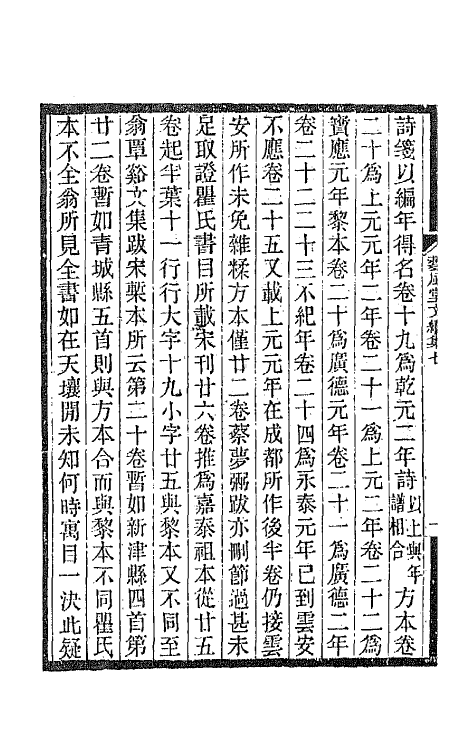 詩箋以編年得名卷十九爲乾元二年詩以上與年譜相合方本卷
二十爲上元元年二年卷二十一爲上元二年卷二十二爲
寶應元年黎本卷二十爲廣德元年卷二十一爲廣德二年
卷二十二二十三不紀年卷二十四爲永泰元年已到雲安
不應卷二十五又載上元元年在成都所作後半卷仍接雲
安所作未免雜糅方本僅廿二卷蔡夢弼跋亦刪節過甚未
足取證瞿氏書目所載宋刊廿六卷推爲嘉泰祖本從廿五
卷起半葉十一行行大字十九小字廿五與黎本又不同至
翁覃谿文集跋宋槧本所云第二十卷暫如新津縣四首第
廿二卷暫如青城縣五首則與方本合而與黎本不同瞿氏
本不全翁所見全書如在天壤閒未知何時寓目一決此疑
藝風堂文續集七
一